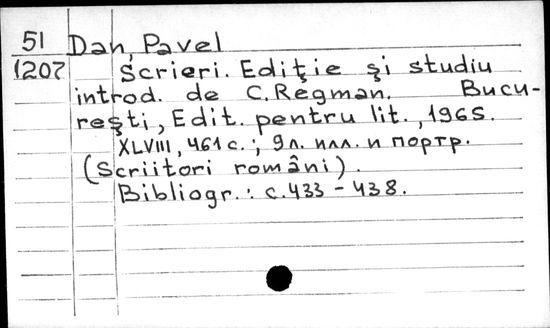 51 Dan, Pavel
1207 Scrieri. Ediţie şi studiu
introd. de C. Regman. Bucu-
reşti, Edit. pentru lit., 1965.
XLVIII, 461 с.; 9 л. илл. и портр.
(Scriitori români).
Bibliogr.: с. 433 - 438.